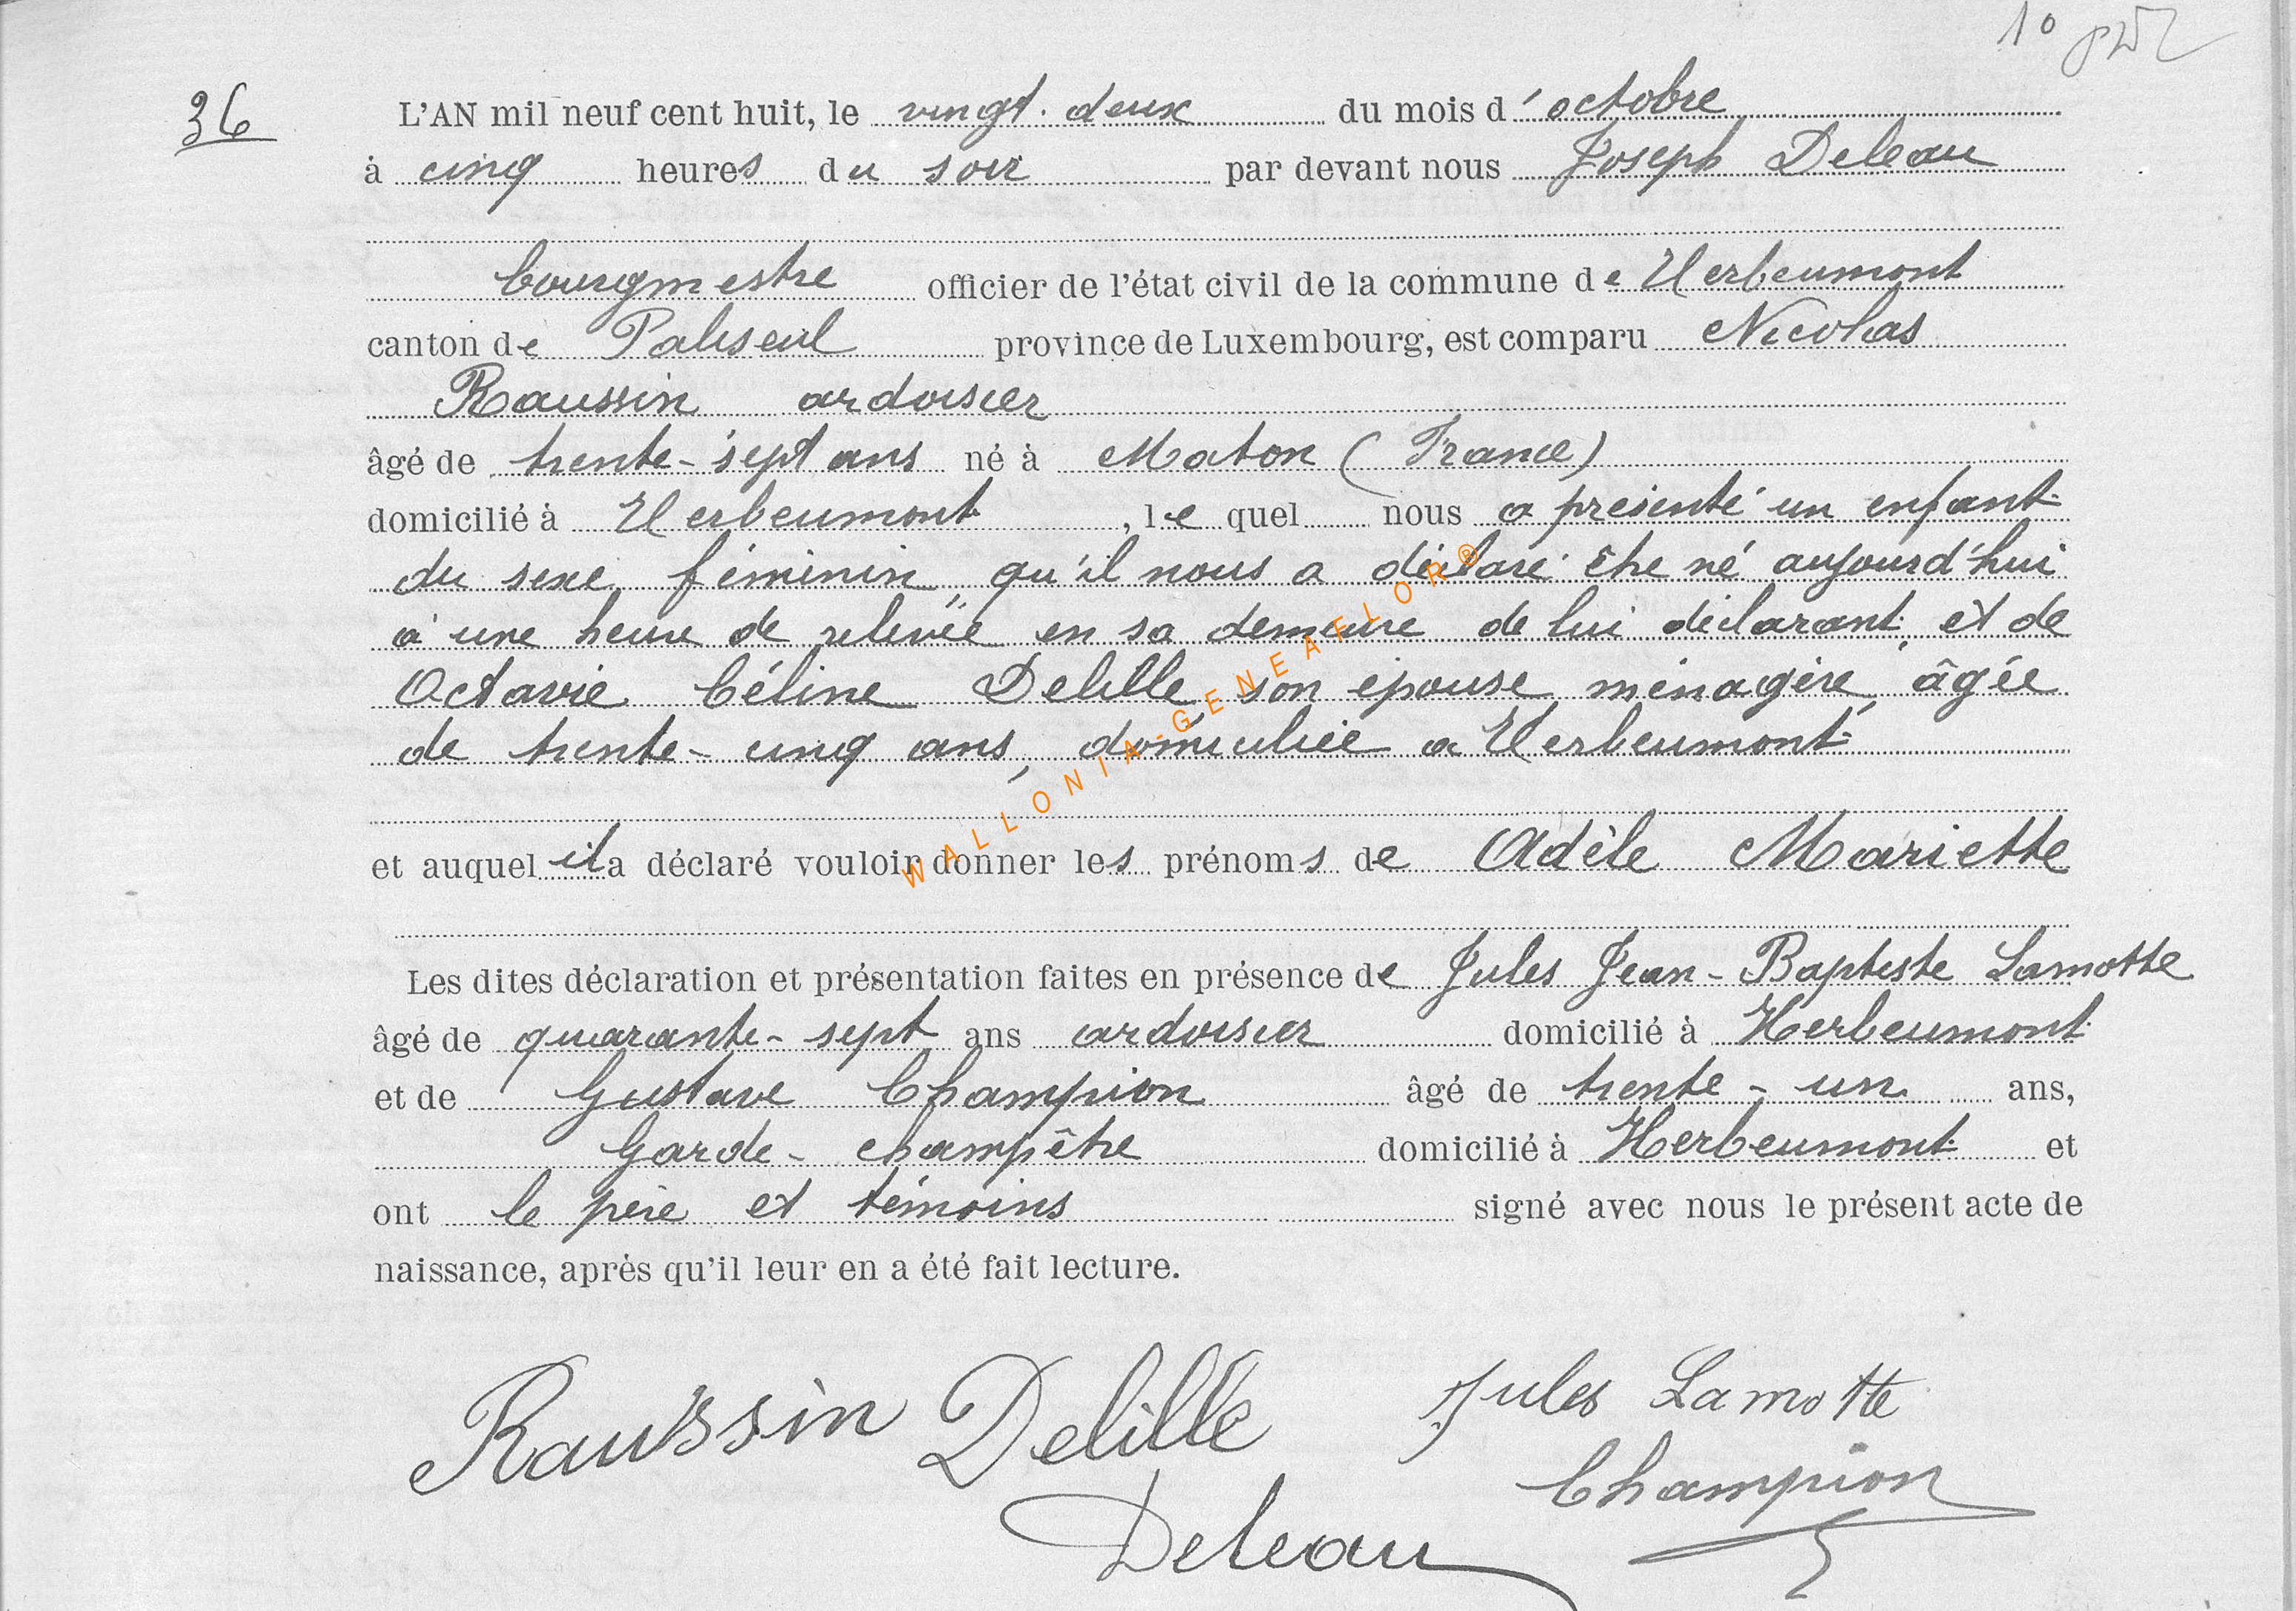 1°
36
L'AN mil neuf cent huit, le vingt-deux du mois d'octobre
à cinq heures du soir par devant nous Joseph Deleau
bourgmestre officier de l'état civil de la commune de Herbeumont
canton de Paliseul province de Luxembourg, est comparu Nicolas
Raussin ardoisier
âgé de trente-sept ans né à Maton (France)
domicilié à Herbeumont, lequel nous a présenté un enfant
du sexe féminin, qu'il nous a déclaré être né aujourd'hui
à une heure de relevée en sa demeure de lui déclarant, et de
Octavie Céline Delille, son épouse, ménagère, âgée
de trente-cinq ans, domiciliée à Herbeumont
et auquel il a déclaré vouloir donner les prénoms de Adèle Mariette
Les dites déclaration et présentation faites en présence de Jules Jean-Baptiste Lamotte
âgé de quarante-sept ans ardoisier domicilié à Herbeumont
et de Gustave Champion âgé de trente-un ans,
Garde-champêtre domicilié à Herbeumont et
ont le père et témoins signé avec nous le présent acte de
naissance, après qu'il leur en a été fait lecture.
Raussin Delille Jules Lamotte
Champion
Deleau
WALLONIA-GENEAFLOR®